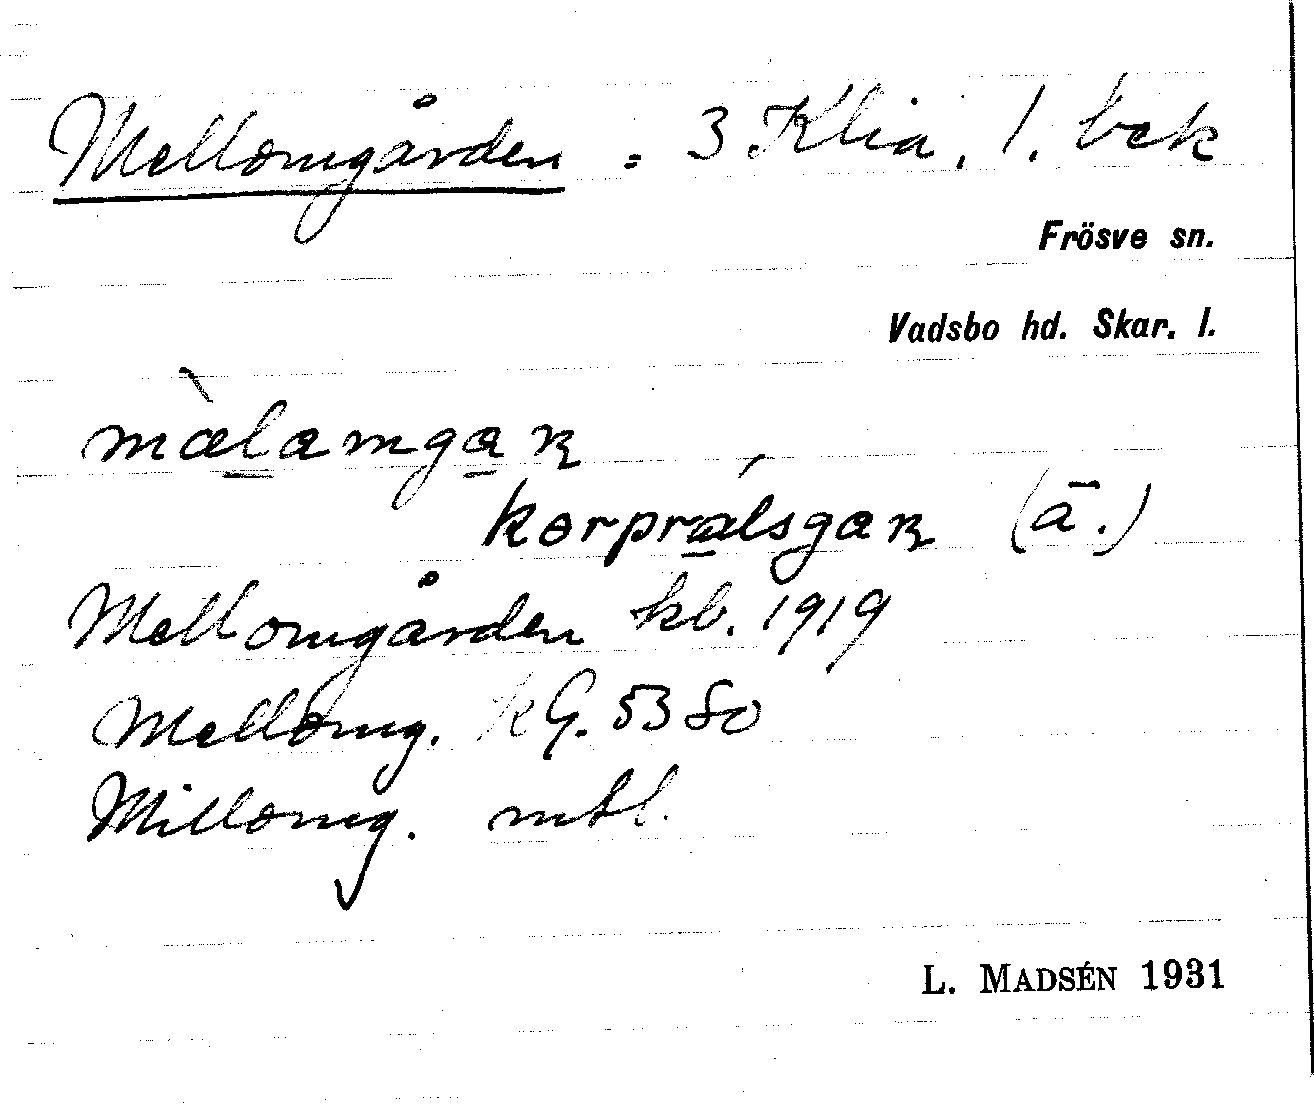 Mellomgården = 3 Klia, 1. bek
Frösve sn.
Vadsbo hd. Skar. l.
màlamgaʀ
kɵrprálsgaʀ (ā.)
Mellomgården kb. 1919
Mellomg. KG. 5380
Millomg. mtl.
L. MADSÉN 1931